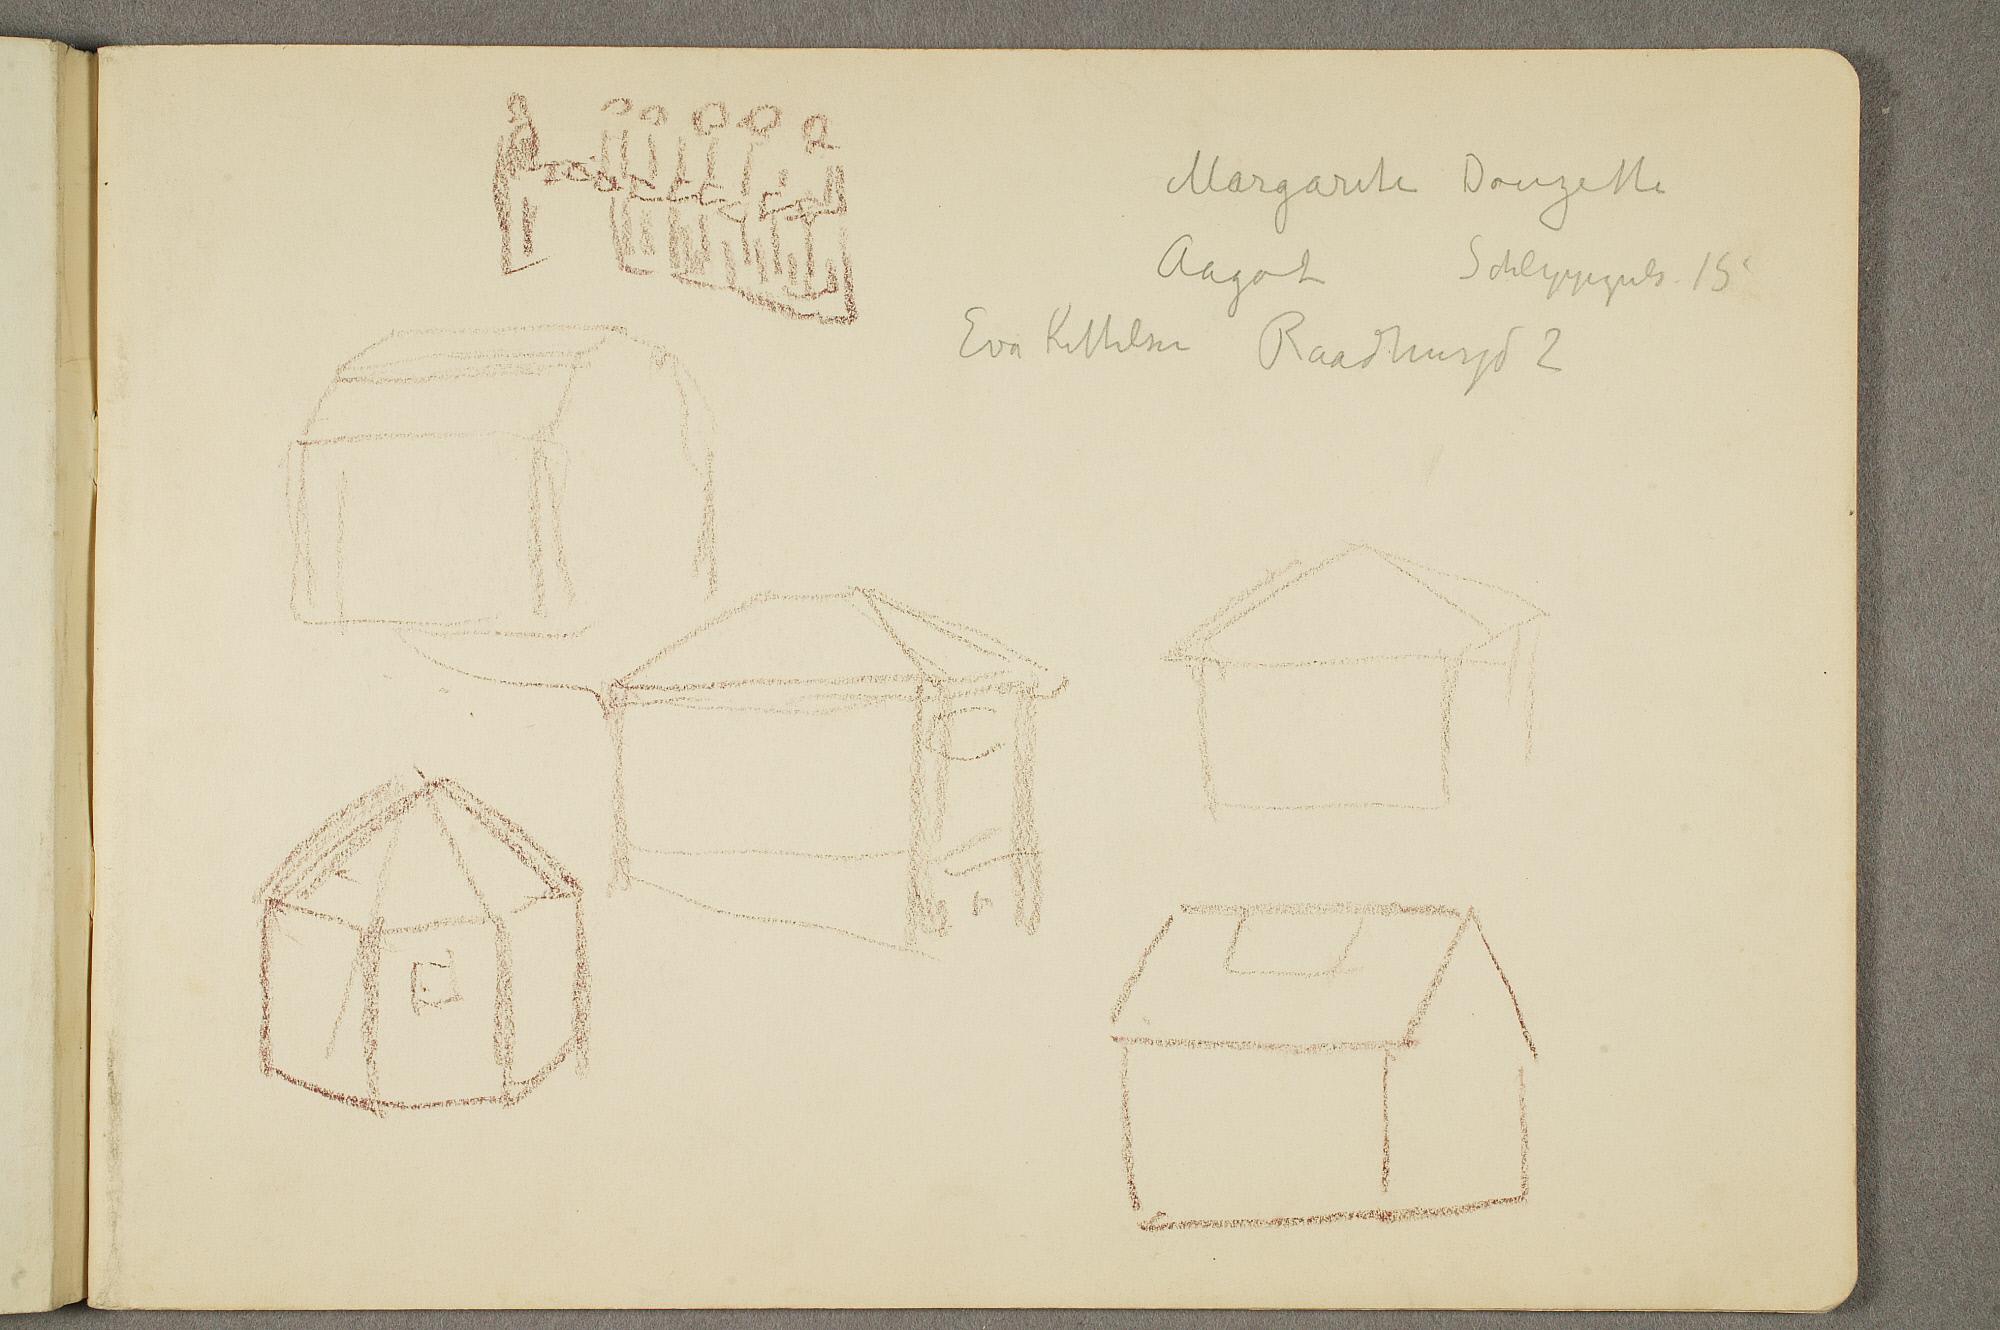 Margarete Douzette
Aagot Schleppegrels. 15
Eva Kittelsen Raadhusgd 2